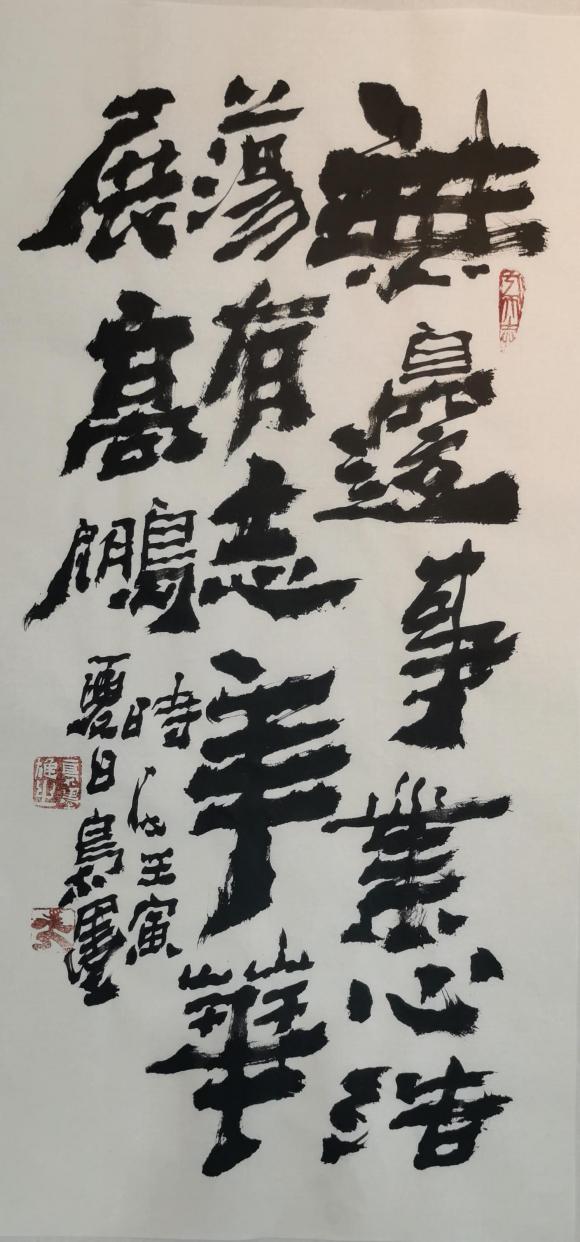 無邊事業心浩
蕩有志年華
展高鵬
時在壬寅
夏日